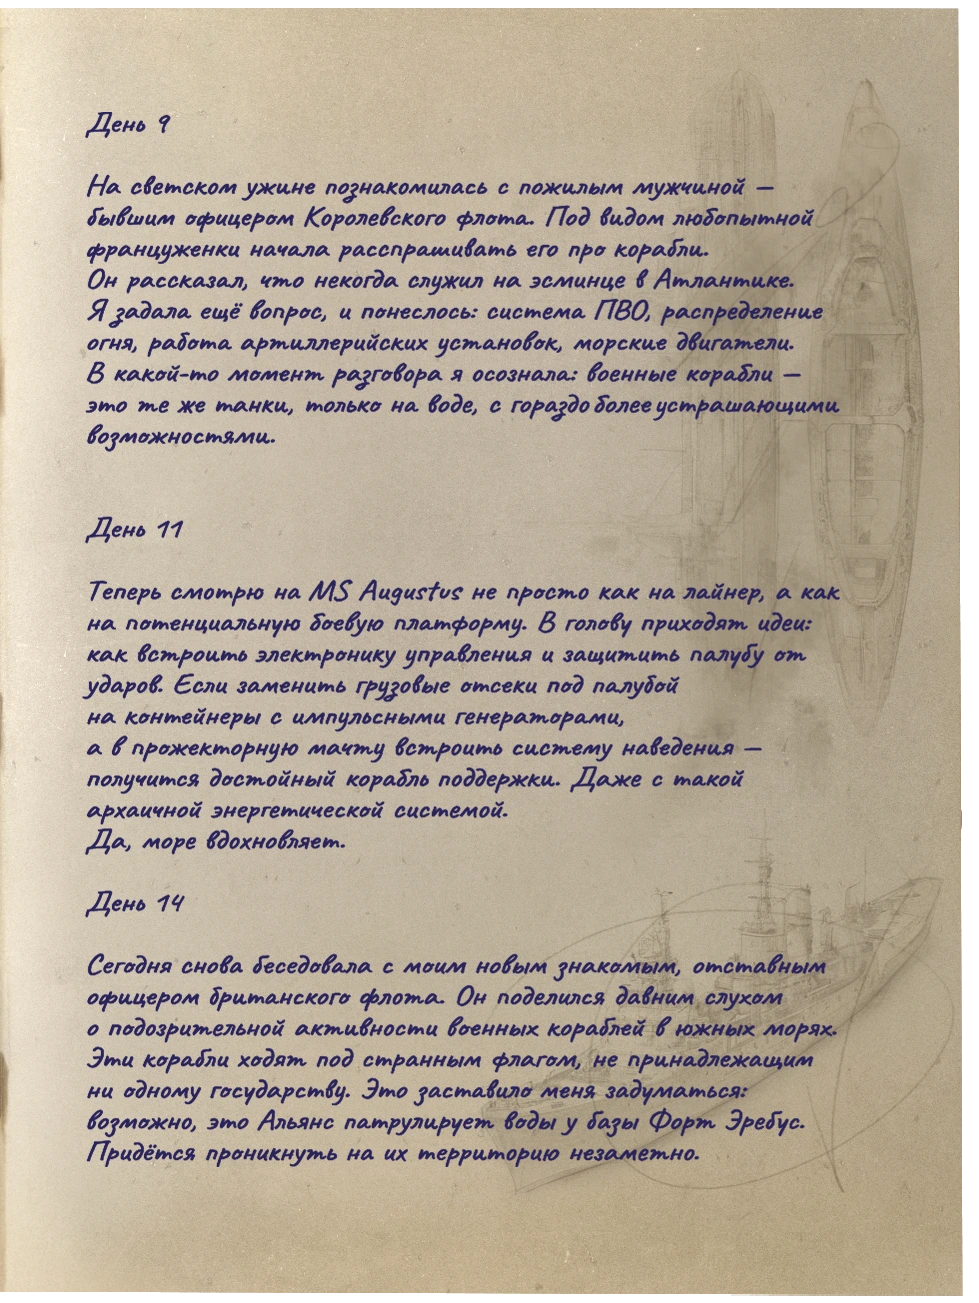 День 9
На светском ужине познакомилась с пожилым мужчиной —
бывшим офицером Королевского флота. Под видом любопытной
француженки начала расспрашивать его про корабли.
Он рассказал, что некогда служил на эсминце в Атлантике.
Я задала ещё вопрос, и понеслось: система ПВО, распределение
огня, работа артиллерийских установок, морские двигатели.
В какой-то момент разговора я осознала: военные корабли —
это те же танки, только на воде, с гораздо более устрашающими
возможностями.
День 11
Теперь смотрю на MS Augustus не просто как на лайнер, а как
на потенциальную боевую платформу. В голову приходят идеи:
как встроить электронику управления и защитить палубу от
ударов. Если заменить грузовые отсеки под палубой
на контейнеры с импульсными генераторами,
а в прожекторную мачту встроить систему наведения —
получится достойный корабль поддержки. Даже с такой
архаичной энергетической системой.
Да, море вдохновляет.
День 14
Сегодня снова беседовала с моим новым знакомым, отставным
офицером британского флота. Он поделился давним слухом
о подозрительной активности военных кораблей в южных морях.
Эти корабли ходят под странным флагом, не принадлежащим
ни одному государству. Это заставило меня задуматься:
возможно, это Альянс патрулирует воды у базы Форт Эребус.
Придётся проникнуть на их территорию незаметно.